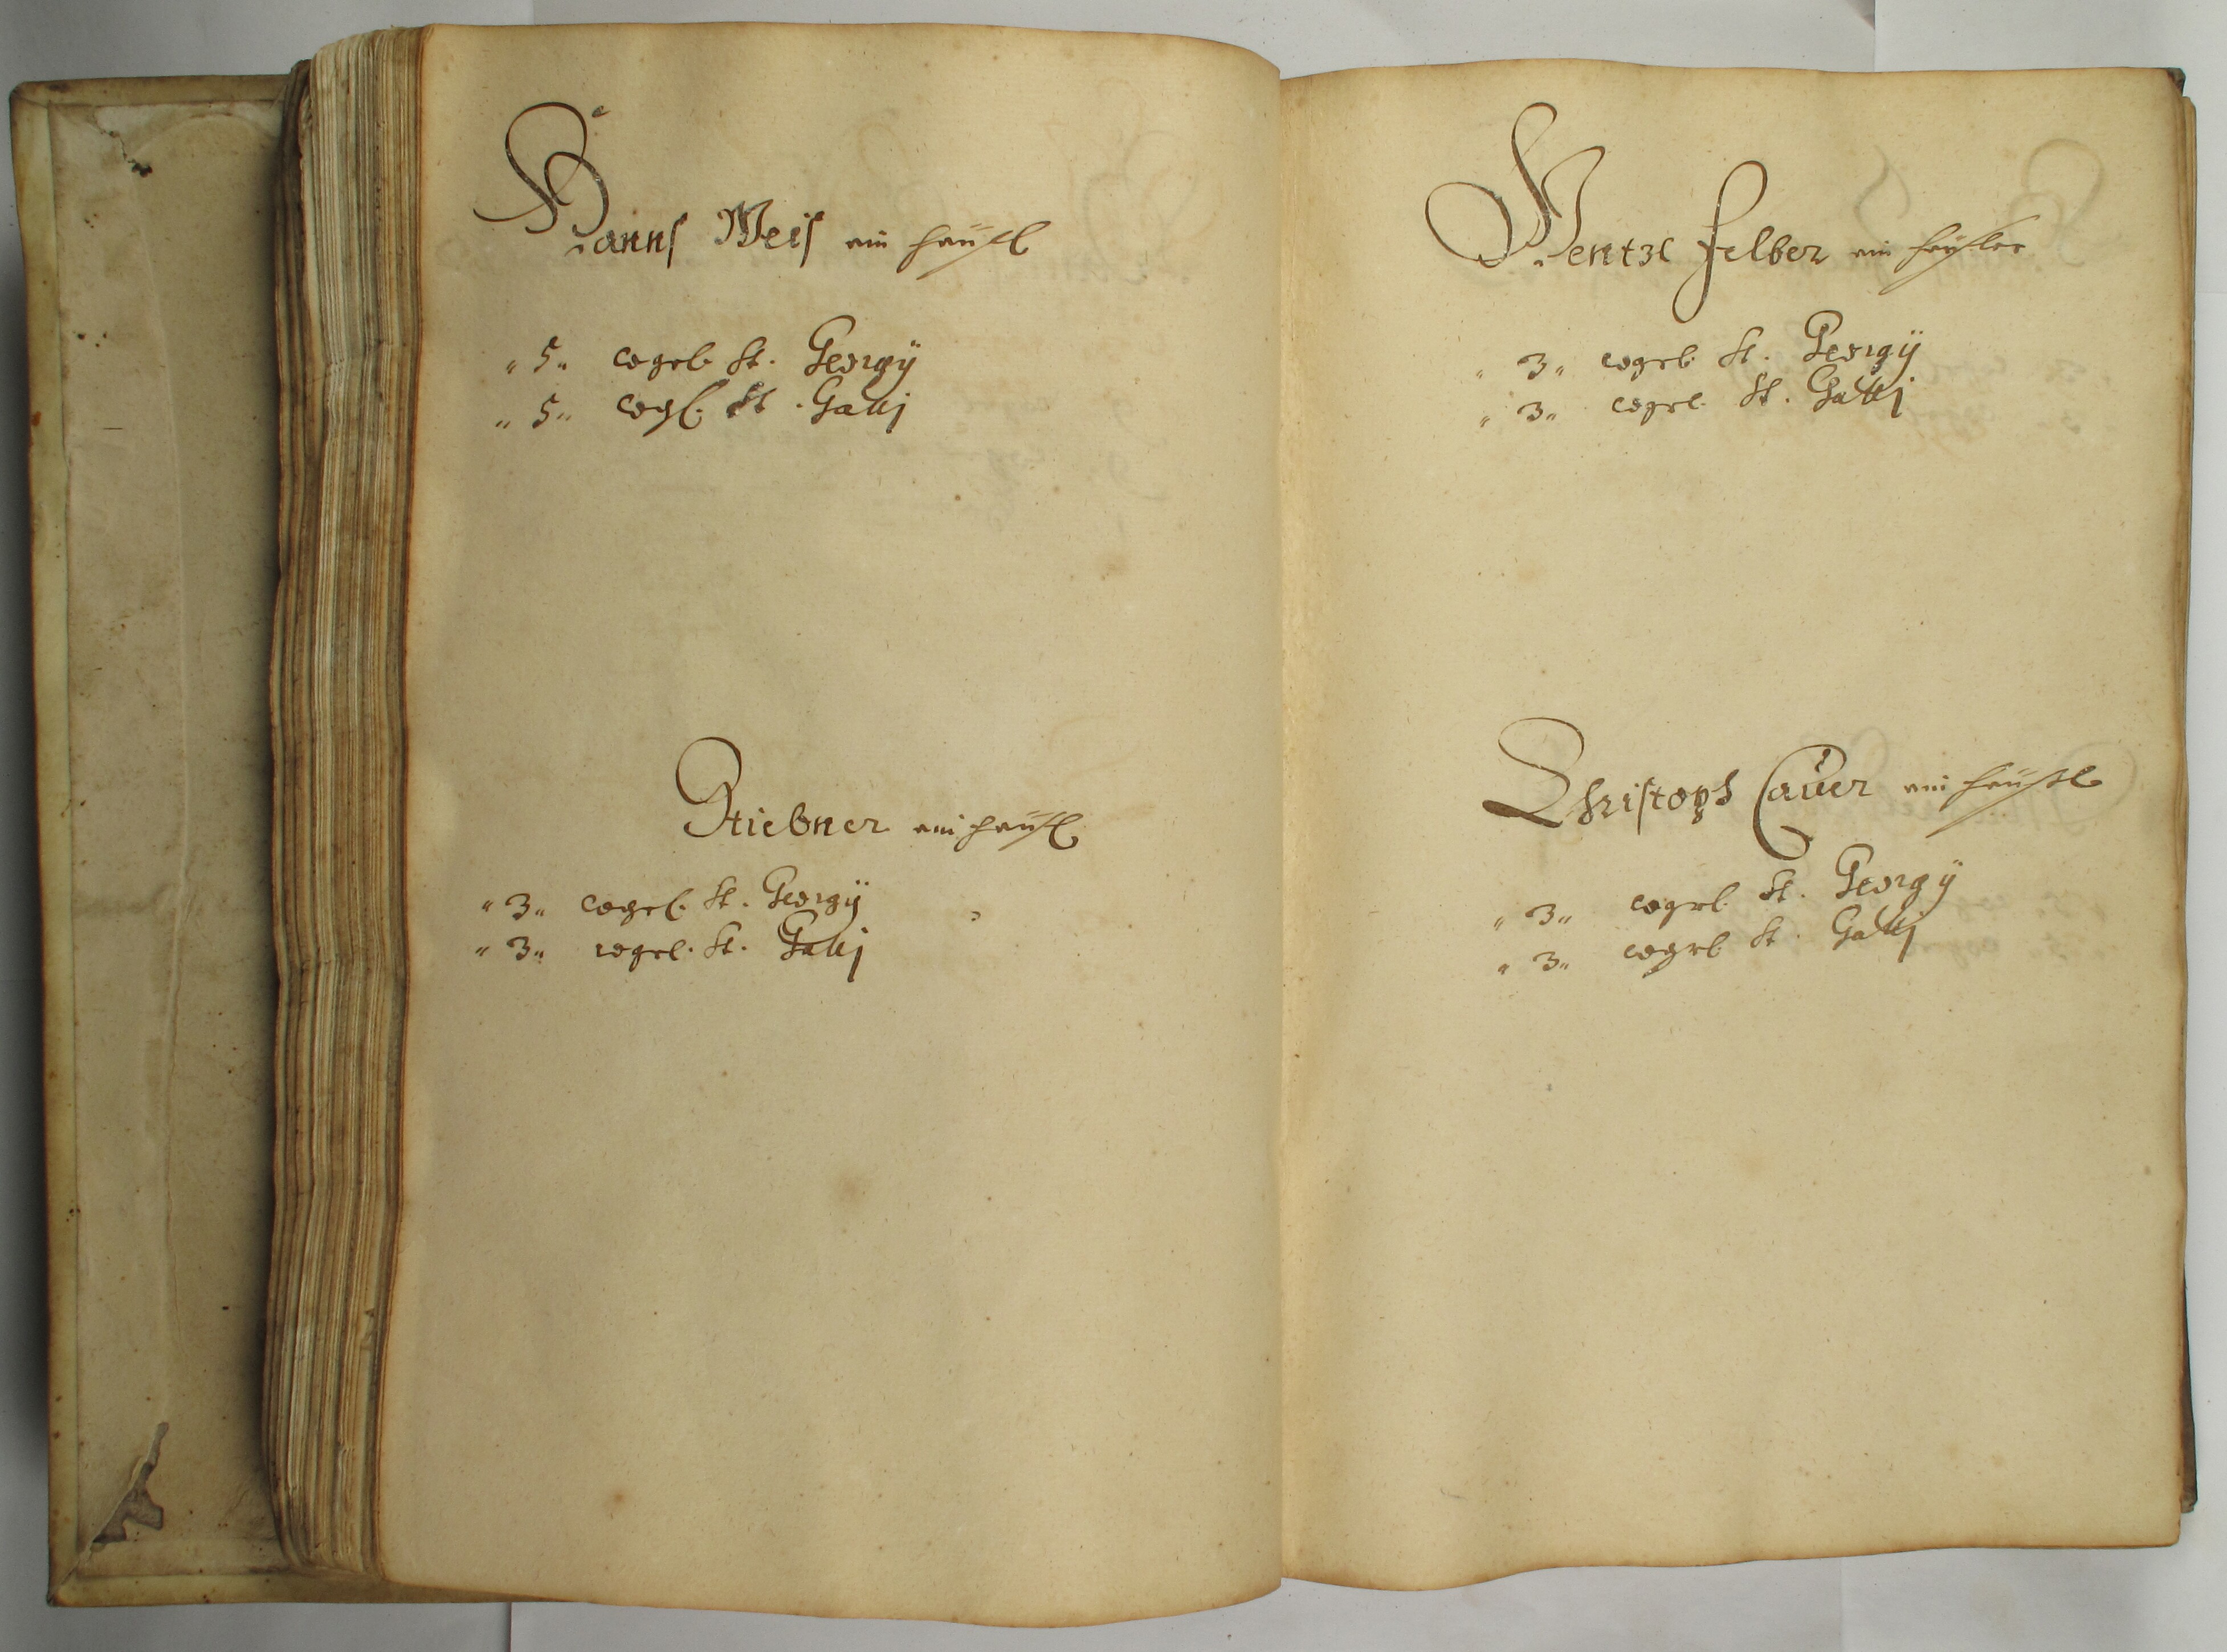 Hannß Weiß ein heüßl
" 5 " wgrl. St. Georgÿ
" 5 " wgl. St. Gallj
Stiebner ein heüßl
" 3 " wgrl. St. Georgÿ
" 3 " wgrl. St. Gallj
Wentzl Felber ein heüßler
" 3 " wgrl. St. Georgÿ
" 3 " wgrl. St. Gallj
Christoph ein heüßl
" 3 " wgrl. St. Georgÿ
" 3 " wgrl. St. Gallj